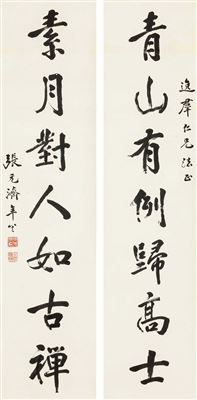 逸群仁兄法正
青山有例歸高士
素月對人如古禪
張元濟年